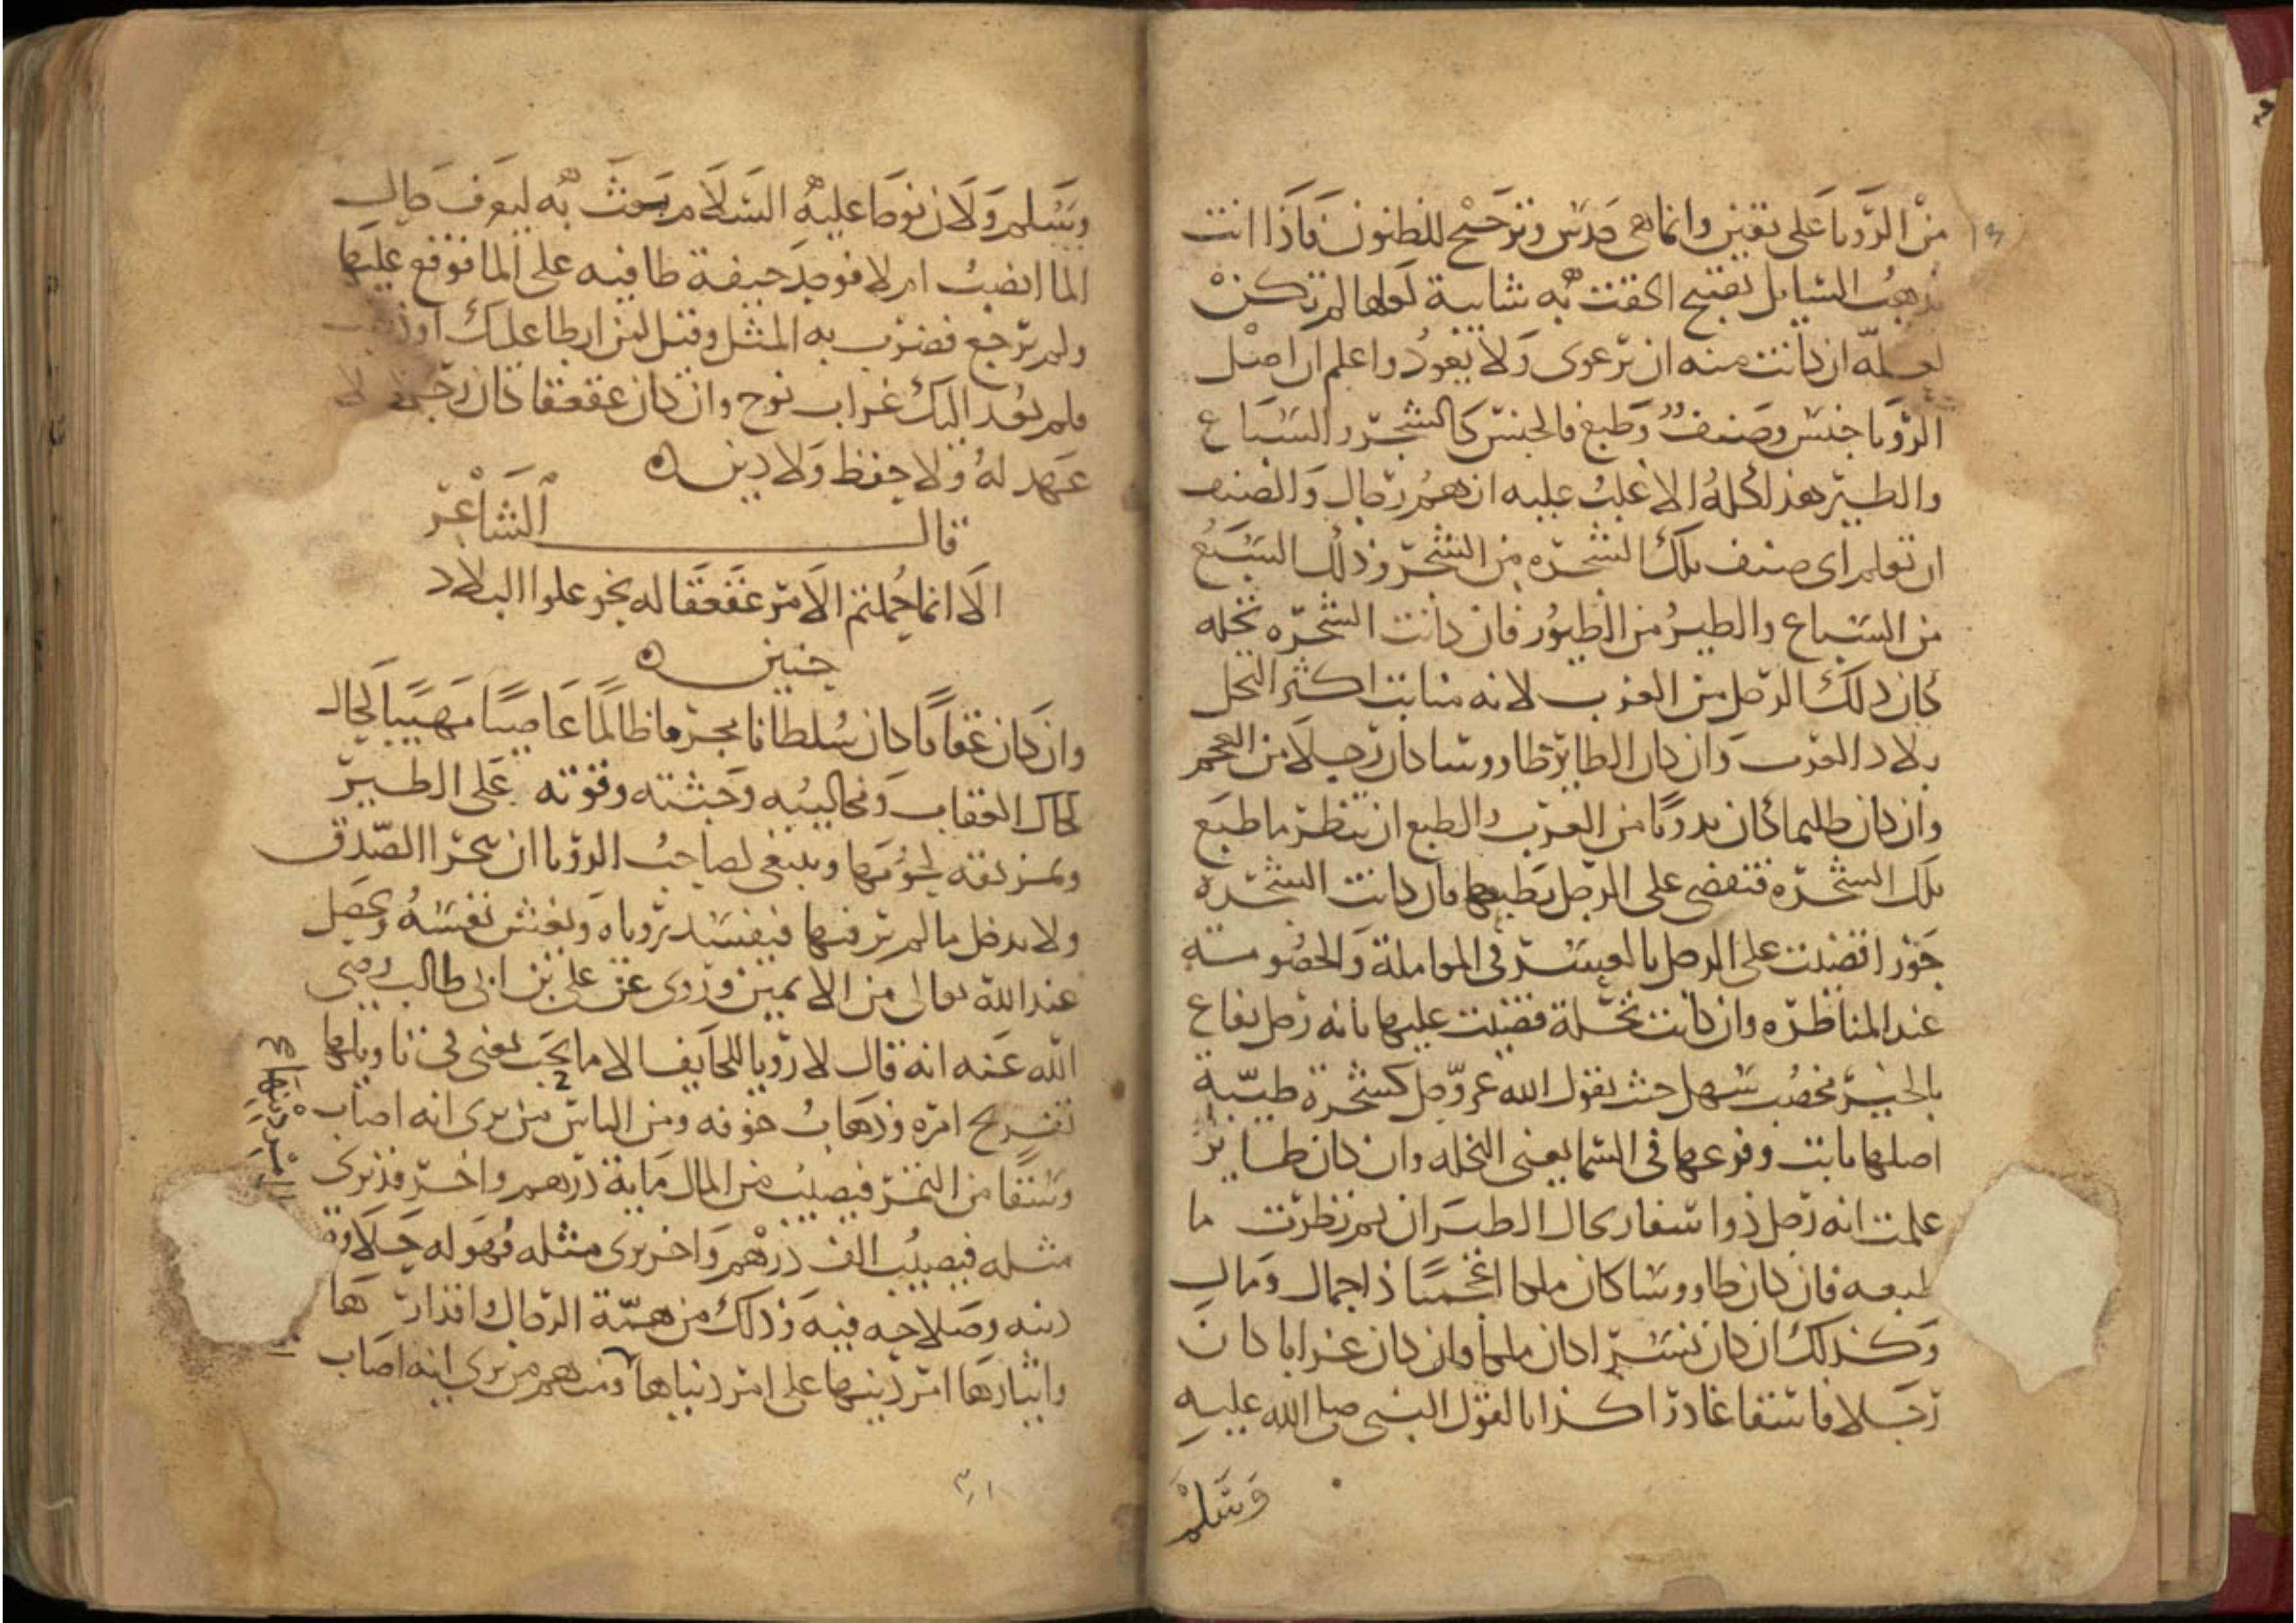 من الرؤيا على يقين وانما هى حدس وترجيح للظنون فاذا انت
بدهت السايل بقبيح الحقت به شايبة لعلها لم تكن
لعله ان كانت منه ان يرعوى ولا يعود واعلم ان اصل
الرؤيا جنس وصنف وطبع فالجنس كالشجر والسباع
والطير هذا كله الاغلب عليه انهم رجال والصنف
ان تعلم اى صنف تلك الشجره من الشجر وذلك السبع
من السباع والطير من الطيور فان كانت الشجره نخله
كان ذلك الرجل من العرب لانه منابت اكثر النخل
بلاد العرب وان كان الطاير طاووسا كان رجلا من العجم
وان كان ظليما كان بدويا من العرب والطبع ان تنظر ما طبع
تلك الشجره فتقضى على الرجل بطبعها فان كانت الشجره
جوزا قضيت على الرجل بالعسر فى المعاملة والخصومته
عند المناظره وان كانت نخلة قضيت عليها بانه رجل نفاع
بالخير مخصب سهل حيث يقول الله عز وجل كشجرة طيبة
اصلها ثابت وفرعها فى السما يعنى النخله وان كان طاير
علمت انه رجل ذوا سفار بحال الطيران ثم نظرت ما
طبعه فان كان طاووسا كان ملكا اعجميا ذا جمال ومال
وكذلك ان كان نسرا كان ملكا وان كان غرابا كان
رجلا فاسقا غادرا كذابا لقول النبى صلى الله عليه
وسلم
وسلم ولان نوحا عليه السلام بعث به ليعرف حال
الما انضب ام لا فوجد جيفة طافيه على الما فوقع عليها
ولم يرجع فضرب به المثل وقيل لمن ابطا عليك او ذهب
فلم يعد اليك غراب نوح وان كان عقعقا كان رجلا لا
عهد له ولا حفظ ولا دين ه
قال الشاعر
الا انما حملتم الامر عقعقا له نحو علوا البلاد
حنين ه
وان كان عقابا كان سلطانا مجرما ظالما عاصيا مهيبا لحال
لحال العقاب ومخاليبه وجثته وقوته على الطير
وتمزيقه لحومها وينبغى لصاحب الرؤيا ان يتحرا الصدق
ولا يدخل ما لم ير فيها فيفسد رؤياه ويغش نفسه ويحصل
عند الله تعالى من الاثمين وروى عن على بن ابى طالب رضى
الله عنه انه قال لا رؤيا للخايف الا ما يحب يعنى فى تاويلها
تفريج امره وذهاب خوفه ومن الناس من يرى انه اصاب
وسقا من التمر فيصيب من المال ماية درهم واخر قد يرى
مثله فيصيب الف درهم واخر يرى مثله فهو له حلاوة
دينه وصلاحه فيه وذلك من همة الرجال واقدارها
وايثارها امر دينها على امر دنياها ومنهم من يرى انه اصاب